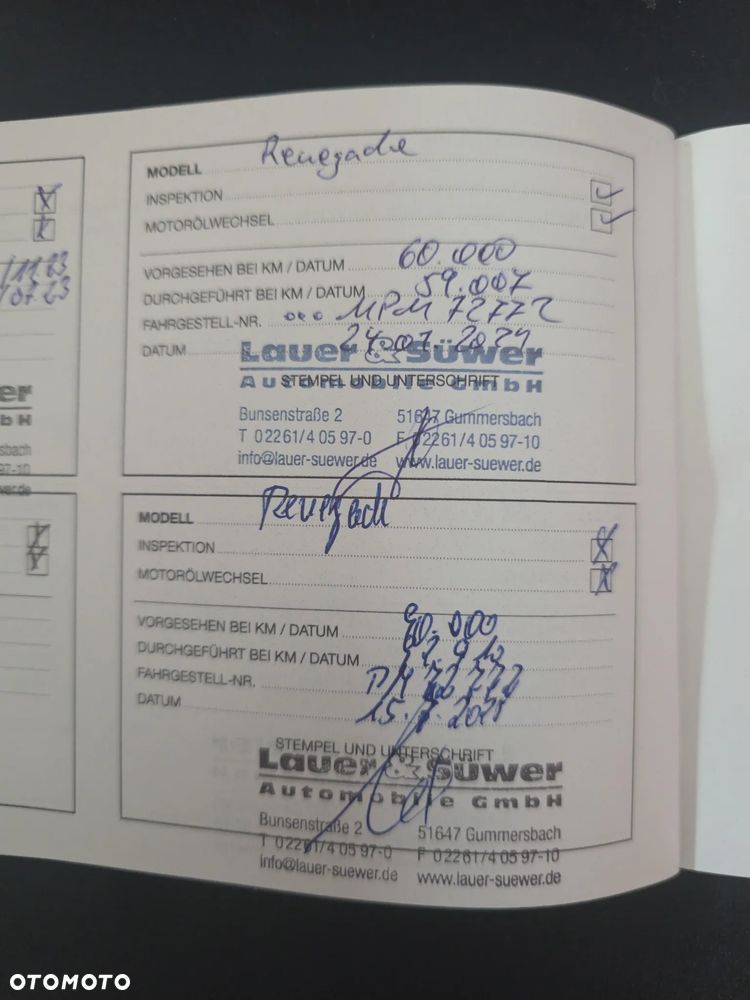 /11.23
/07.23
er
bH
sbach
97-10
wer.de
MODELL Renegade
INSPEKTION
MOTORÖLWECHSEL
VORGESEHEN BEI KM / DATUM 60.000
DURCHGEFÜHRT BEI KM / DATUM 59.007
FAHRGESTELL-NR. ... MPM 72772
DATUM 24.07.2024
Lauer & Süwer
Automobile GmbH
STEMPEL UND UNTERSCHRIFT
Bunsenstraße 2 51647 Gummersbach
T 02261/4 05 97-0 F 02261/4 05 97-10
info@lauer-suewer.de www.lauer-suewer.de
MODELL Renegade
INSPEKTION
MOTORÖLWECHSEL
VORGESEHEN BEI KM / DATUM
DURCHGEFÜHRT BEI KM / DATUM
FAHRGESTELL-NR.
DATUM
STEMPEL UND UNTERSCHRIFT
Lauer & Süwer
Automobile GmbH
Bunsenstraße 2 51647 Gummersbach
T 02261/4 05 97-0 F 02261/4 05 97-10
info@lauer-suewer.de www.lauer-suewer.de
OTOMOTO